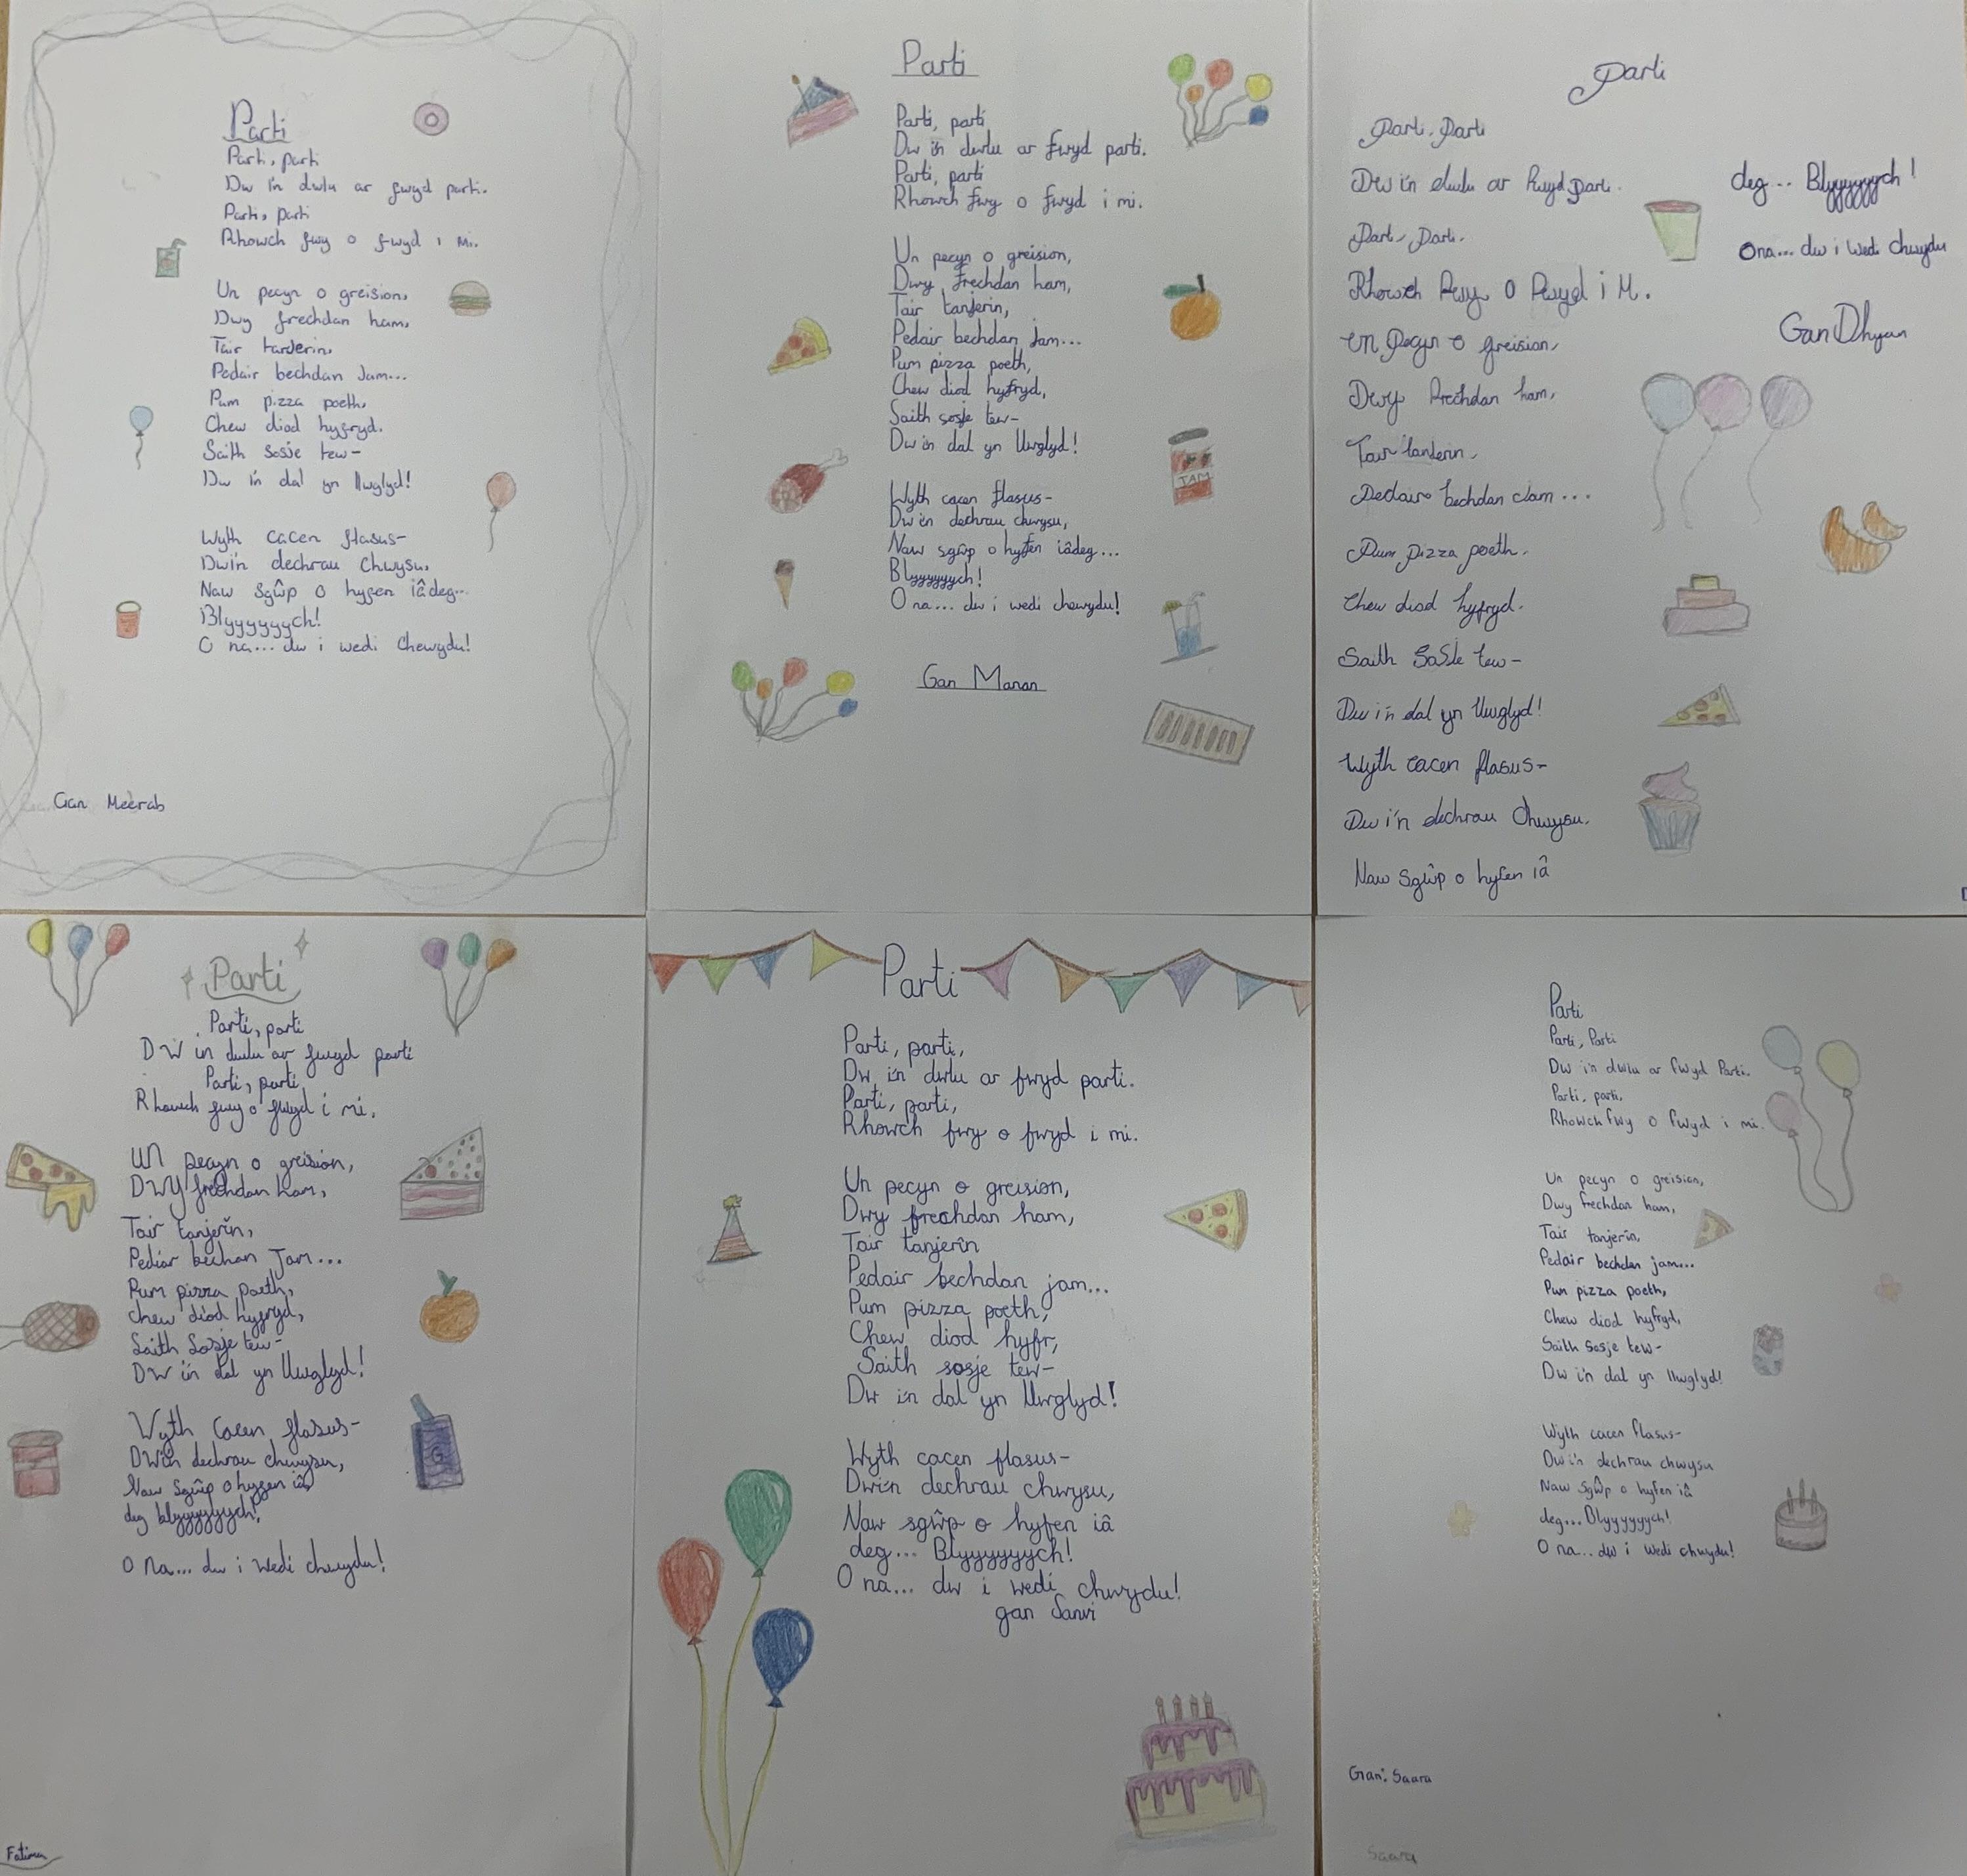 Parti
Parti, parti
Dw i'n dwlu ar fwyd parti.
Parti, parti
Rhowch fwy o fwyd i mi.
Un pecyn o greision,
Dwy frechdan ham,
Tair tanderin,
Pedair bechdan Jam...
Pum pizza poeth,
Chew diod hyfryd.
Saith sosje tew-
Dw i'n dal yn llwglyd!
Wyth cacen flasus-
Dwi'n dechrau Chwysu,
Naw Sgŵp o hyfen iâdeg...
Blyyyyyych!
O na... dw i wedi Chewydu!
Gan Meerab
Parti
Parti, parti
Dw i'n dwlu ar fwyd parti.
Parti, parti
Rhowch fwy o fwyd i mi.
Un pecyn o greision,
Dwy frechdan ham,
Tair tanjerin,
Pedair bechdan Jam...
Pum pizza poeth,
Chew diod hyfryd,
Saith sosje tew-
Dw i'n dal yn llwglyd!
Wyth cacen flasus-
Dw i'n dechrau chwysu,
Naw sgŵp o hyfen iâdeg...
Blyyyyyych!
O na... dw i wedi chewydu!
Gan Manan
JAM
Parti
Parti, Parti
Dw i'n dwlu ar fwyd Parti.
Parti, Parti.
Rhowch fwy o fwyd i M.
Un Pecyn o greision,
Dwy frechdan ham,
Tair tanterin,
Pedair bechdan Jam...
Pum Pizza poeth.
Chew diod hyfryd.
Saith SoSJe tew-
Dw i'n dal yn llwglyd!
Wyth cacen flasus-
Dw i'n dechrau Chwysu.
Naw Sgŵp o hyfen iâ
deg... Blyyyyyych!
Ona... dw i Wedi chwydu
Gan Dhyan
Parti
Parti, parti
DW i'n dwlu ar fwyd parti
Parti, parti
Rhowch fwy o fwyd i mi.
UN pecyn o greision,
DWY frechdan ham,
Tair tanjerîn,
Pediar bechan Jam...
Pum pizza poeth,
chew diod hyfryd,
Saith Sosje tew-
DW i'n dal yn llwglyd!
Wyth Cacen flasus-
DWin dechrau chwysu,
Naw Sgŵp o hyfen iâ
deg blyyyyyyych!
O Na... dw i Wedi chwydu!
G
Fatima
Parti
Parti, parti,
Dw i'n dwlu ar fwyd parti.
Parti, parti,
Rhowch fwy o fwyd i mi.
Un pecyn o greision,
Dwy frechdan ham,
Tair tanjerîn
Pedair bechdan jam...
Pum pizza poeth,
Chew diod hyfr,
Saith sosje tew-
Dw i'n dal yn llwglyd!
Wyth cacen flasus-
Dwi'n dechrau chwysu,
Naw sgŵp o hyfen iâ
deg... Blyyyyyych!
O na... dw i wedi chwydu!
gan Sanvi
Parti
Parti, Parti
Dw i'n dwlu ar fwyd Parti.
Parti, parti,
Rhowch fwy o fwyd i mi.
Un pecyn o greision,
Dwy frechdan ham,
Tair tanjerîn,
Pedair bechdan jam...
Pum pizza poeth,
Chew diod hyfryd,
Saith Sosje tew-
Dw i'n dal yn llwglyd!
Wyth cacen flasus-
Dw i'n dechrau chwysu
Naw Sgŵp o hyfen iâ
deg...Blyyyyyych!
O na... dw i wedi chwydu!
Gan: Saara
Saara